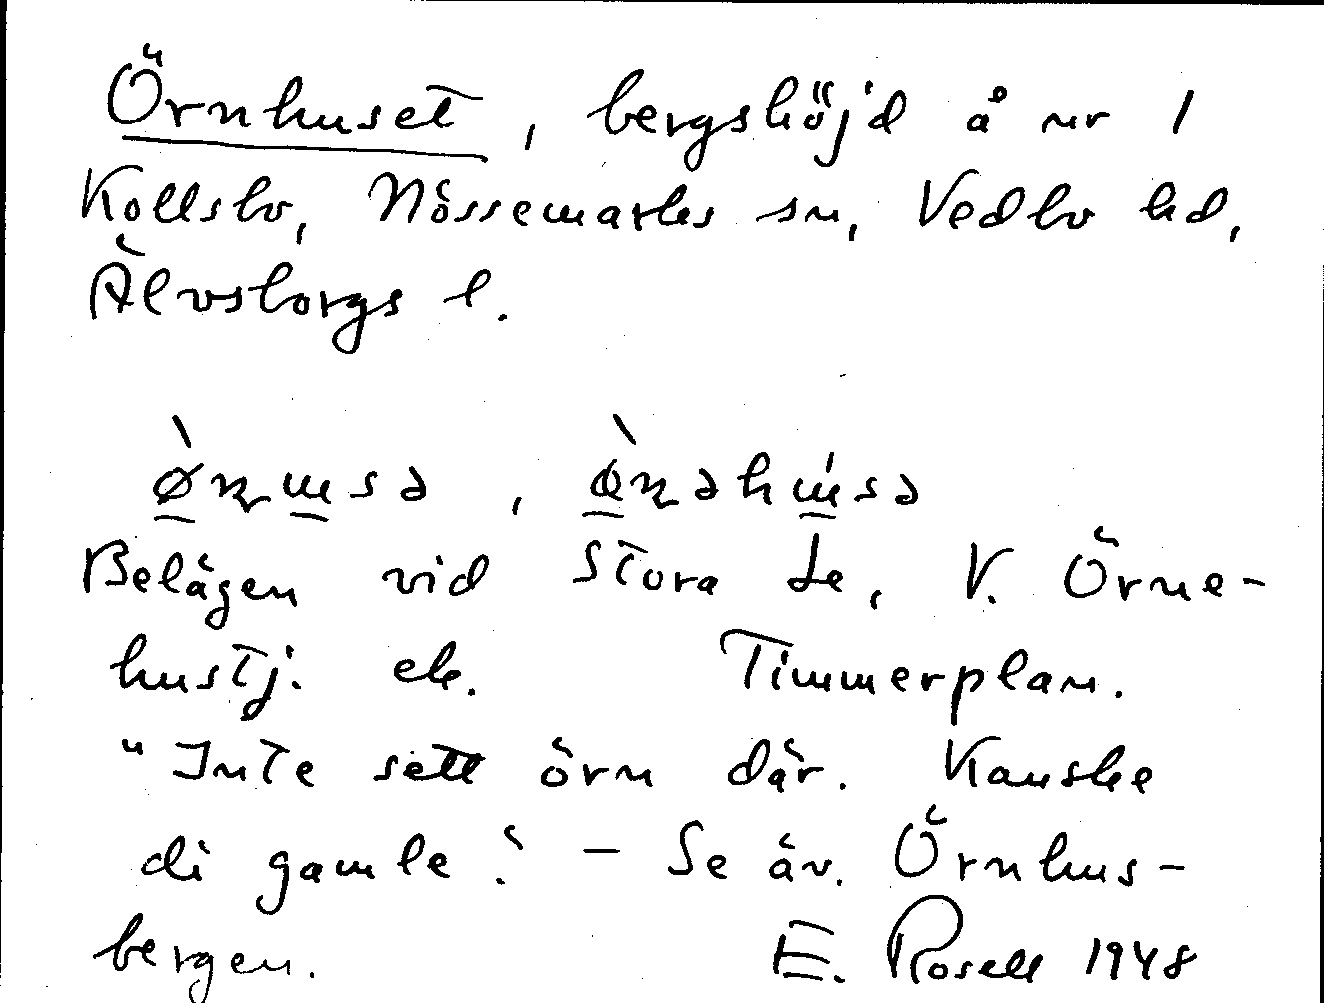 Örnhuset, bergshöjd å nr 1
Kollsbo, Nössemarks sn, Vedbo hd,
Älvsborgs l.
Belägen vid Stora Le, V. Örne-
hustj. ek. Timmerplan.
"Inte sett örn där. Kanske
di gamle? – Se äv. Örnhus-
bergen. E. Rosell 1948